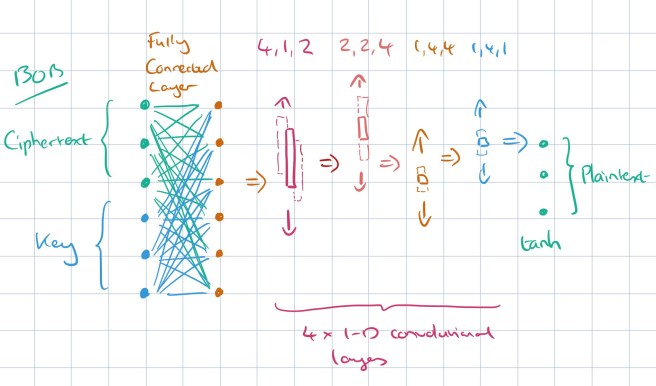 BOB
Fully
Connected
Layer
4,1,2
2,2,4
1,4,4
1,4,1
Ciphertext
Key
Plaintext
tanh
4 x 1-D convolutional
layers